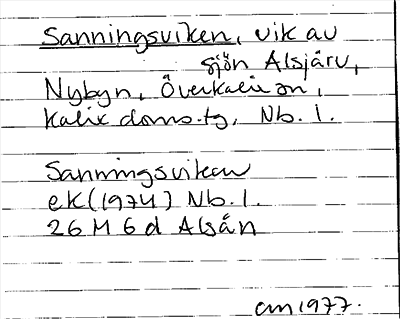 Sanningsviken, vik av
sjön Alsjärv,
Nybyn, Överkalix sn,
Kalix doms.tg, Nb. l.
Sanningsviken
ek (1974) Nb. l.
26 M 6 d Alsån
am 1977.